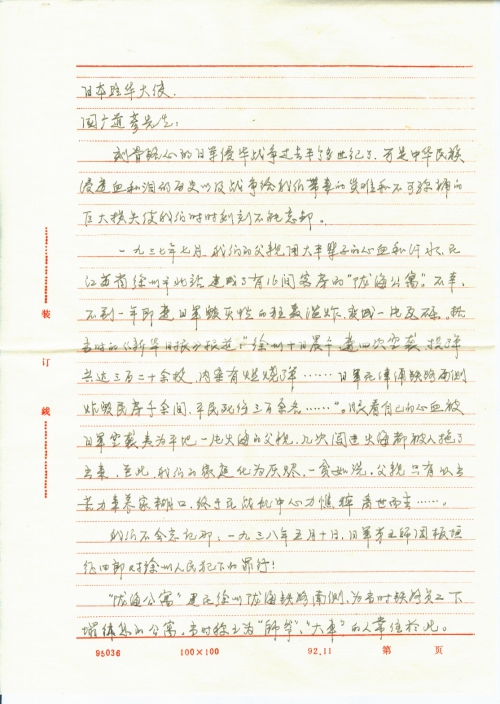 日本驻华大使
国广道彦先生:
刻骨铭心的日军侵华战争过去半个多世纪了,可是中华民族
浸透血和泪的历史以及战争给我们带来的灾难和不可弥补的
巨大损失使我们时时刻刻不能忘却。
一九三七年七月,我们的父亲用大半辈子的心血和汗水,在
江苏省徐州市北站建成了有16间客房的“陇海公寓”。不幸,
不到一年即遭日军毁灭性的狂轰滥炸,变成一片瓦砾。据
当时的《新华日报》报道:“徐州十日晨十遭四次空袭,投弹
共达三百二十余枚,内杂有燃烧弹……日军在津浦铁路两侧
炸毁民房千余间,平民死伤三百余名……”。眼看着自己的心血被
日军空袭夷为平地,一片火海的父亲,几次闯进火海都被人拖了
出来,至此,我们的家庭化为灰烬,一贫如洗,父亲只有以出
苦力来养家糊口,终于在战乱中心力憔悴离世而去……。
我们不会忘记那:一九三八年五月十日,日军第五师团板垣
征四郎对徐州人民犯下的罪行!
“陇海公寓”建在徐州陇海铁路南侧,为当时铁路员工下
榻休息的公寓,当时称之为“师爷”、“大车”的人常住於此。
装
订
线
95036 100×100 92.11 第 页